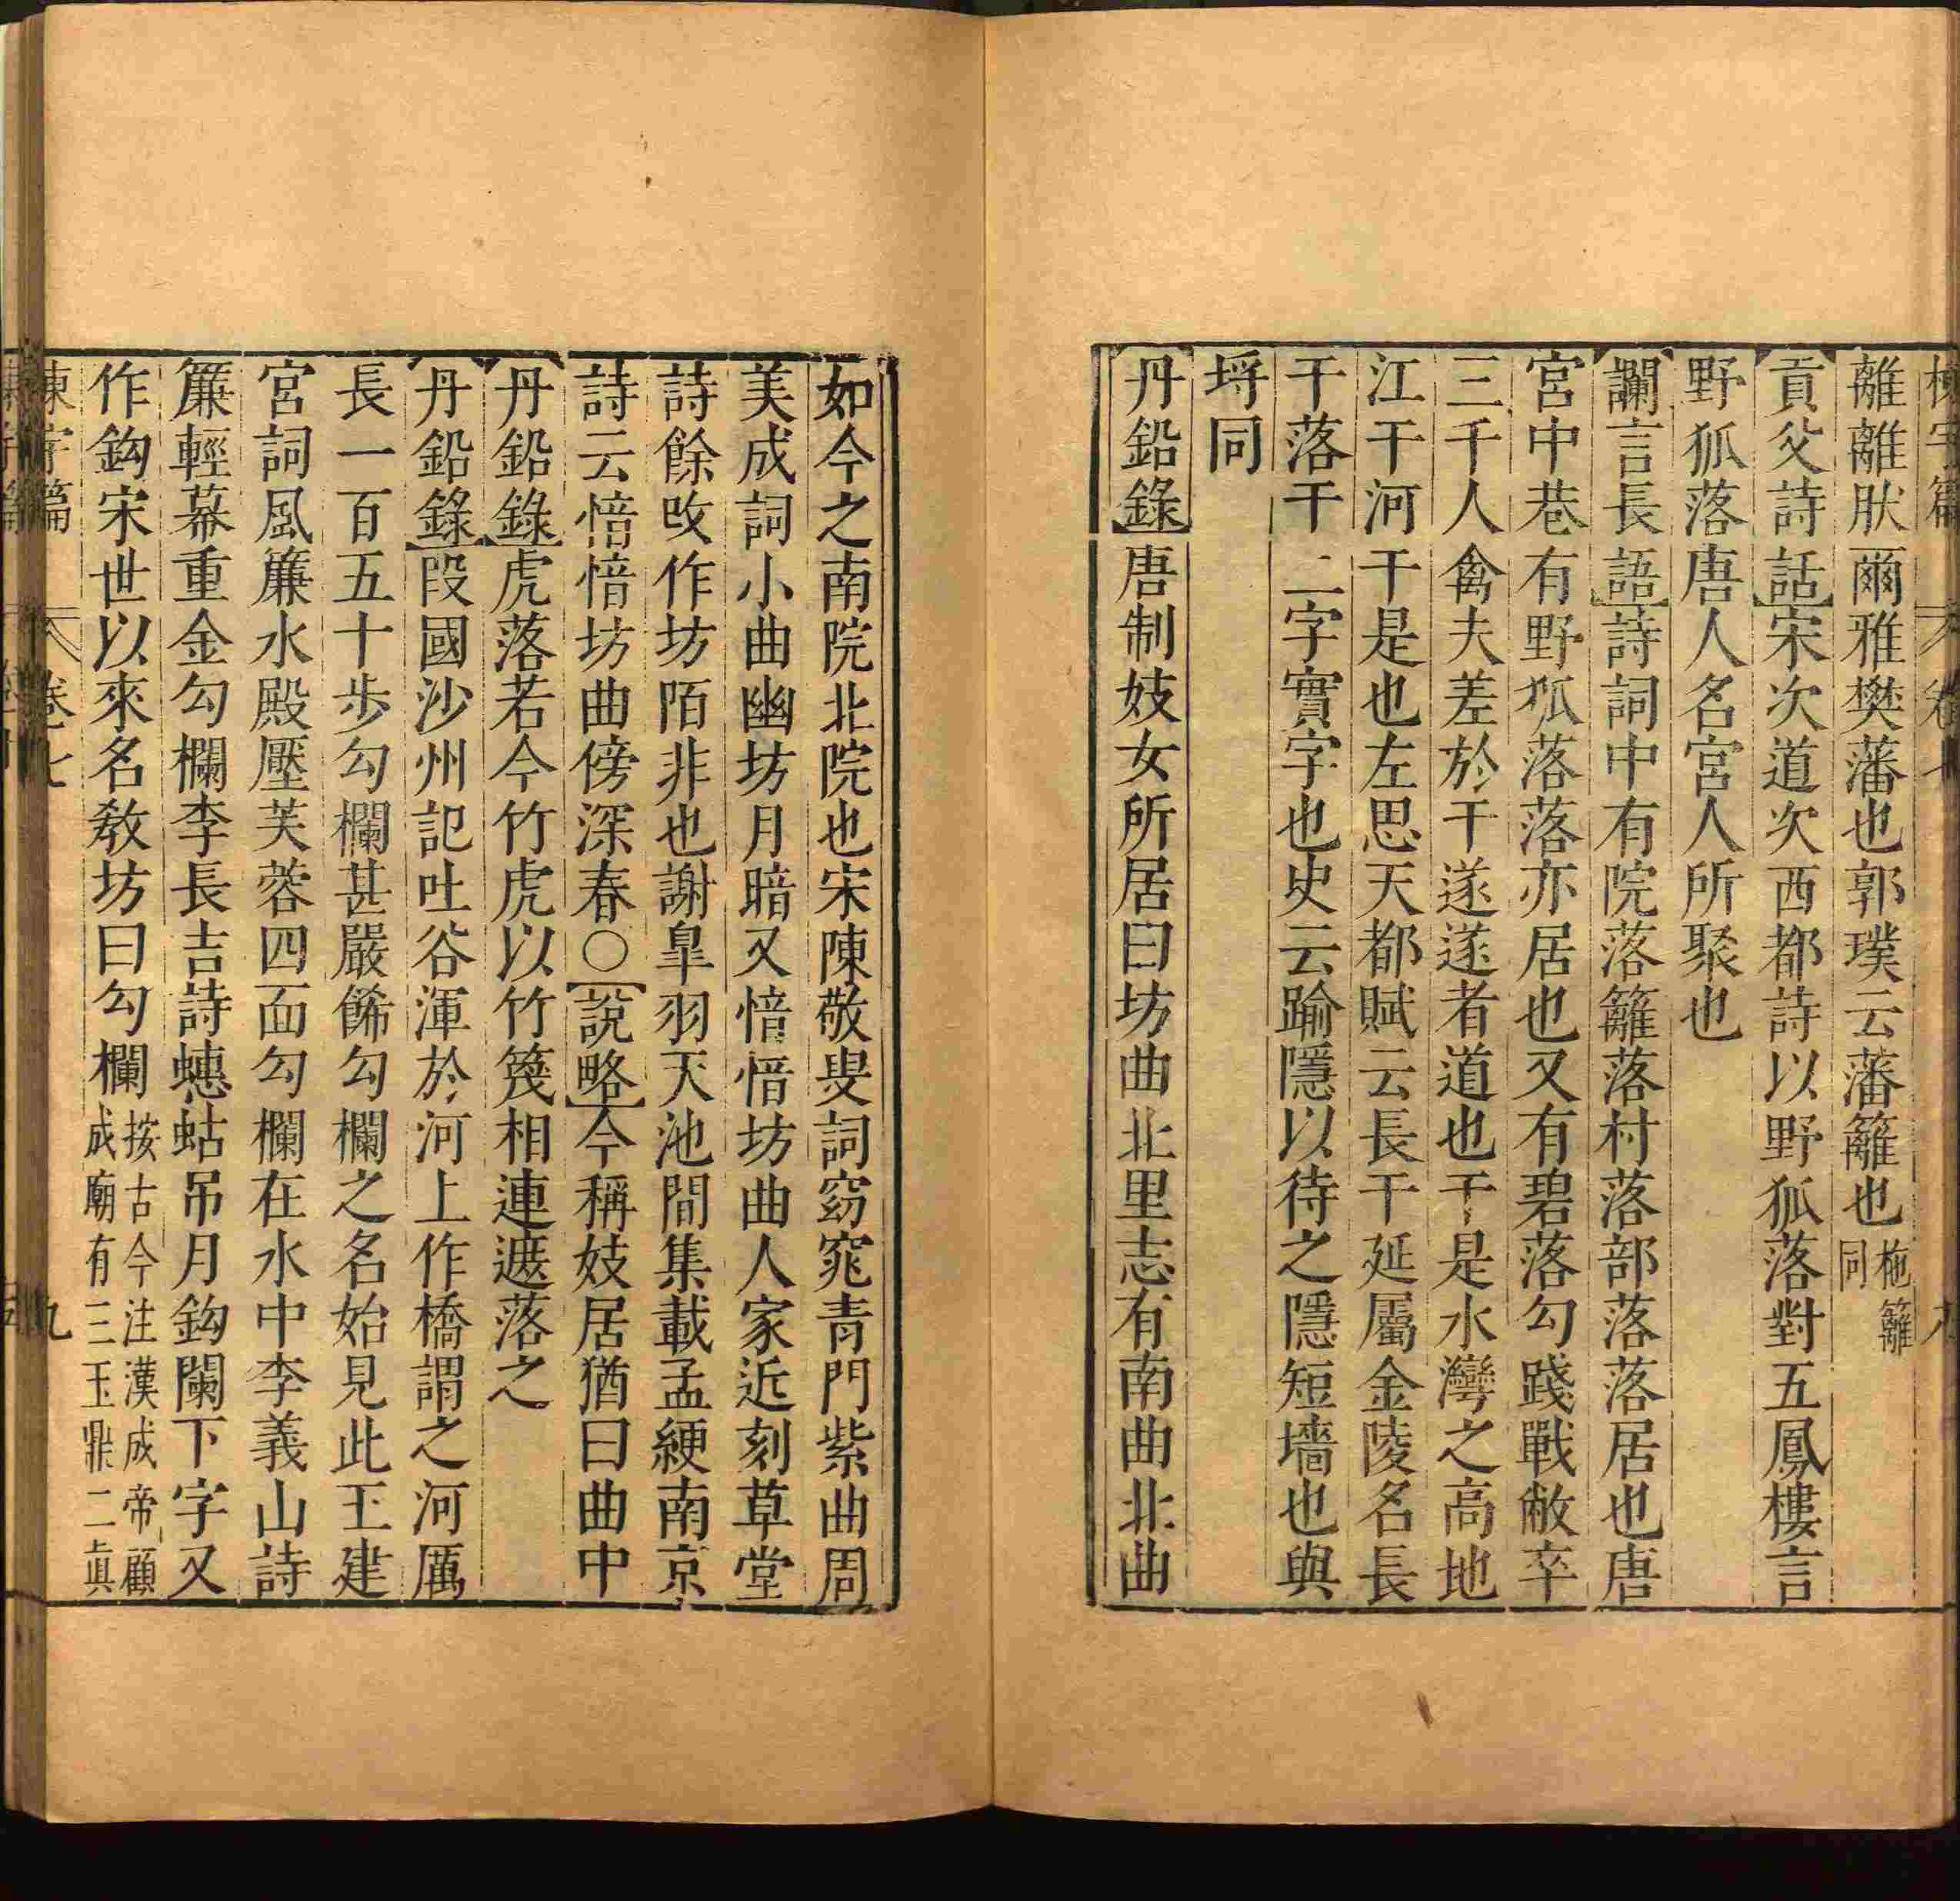 離離肰爾雅樊藩也郭璞云藩籬也杝籬同
貢父詩話宋次道次西都詩以野狐落對五鳳樓言
野狐落唐人名宮人所聚也
讕言長語詩詞中有院落籬落村落部落落居也唐
宮中巷有野狐落落亦居也又有碧落勾踐戰敝卒
三千人禽夫差於干遂遂者道也干是水灣之高地
江干河干是也左思天都賦云長干延屬金陵名長
干落干二字實字也史云踰隱以待之隱短墻也與
埒同
丹鉛錄唐制妓女所居曰坊曲北里志有南曲北曲
如今之南院北院也宋陳敬叟詞窈窕青門紫曲周
美成詞小曲幽坊月暗又愔愔坊曲人家近刻草堂
詩餘改作坊陌非也謝皐羽天池間集載孟綆南京
詩云愔愔坊曲傍深春○說略今稱妓居猶曰曲中
丹鉛錄虎落若今竹虎以竹篾相連遮落之
丹鉛錄段國沙州記吐谷渾於河上作橋謂之河厲
長一百五十步勾欄甚嚴餙勾欄之名始見此王建
宮詞風簾水殿壓芙蓉四面勾欄在水中李義山詩
簾輕幕重金勾欄李長吉詩蟪蛄吊月鈎闌下字又
作鈎宋世以來名教坊曰勾欄按古今注漢成帝顧成廟有三玉鼎二眞
陳字篇 卷七 九